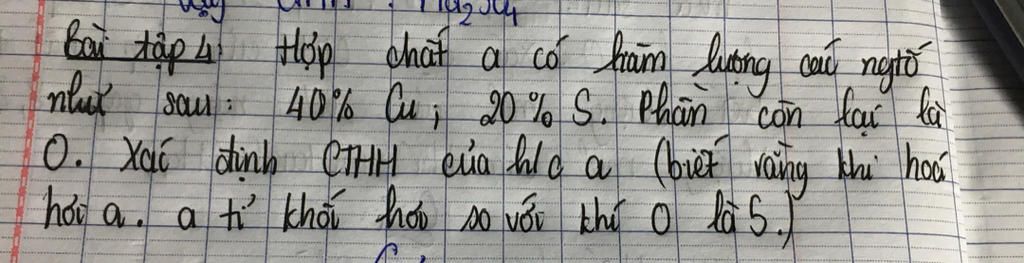 Na2SO4
Bài tập 4: Hợp chất a có hàm lượng các ngtố
như sau: 40% Cu; 20% S. Phần còn lại là
O. Xác định CTHH của h/c a (biết rằng khi hoá
hơi a. a tỉ khối hơi so với khí O là 5.)